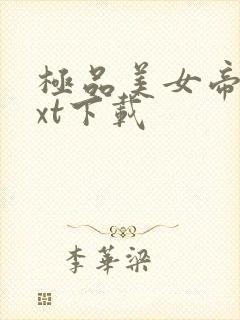 極品美女帝
xt下載
李華梁